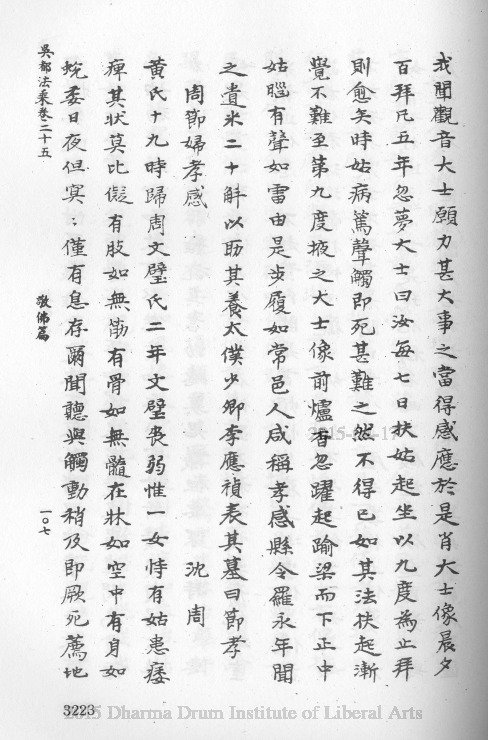 我聞觀音大士願力甚大事之當得感應於是肖大士像晨夕
百拜凡五年忽夢大士曰汝每七日扶姑起坐以九度為止拜
則愈矣時姑病篤聲觸即死甚難之然不得已如其法扶起漸
覺不難至第九度掖之大士像前爐香忽躍起踰梁而下正中
姑腦有聲如雷由是步履如常邑人咸稱孝感縣令羅永年聞
之遺米二十斛以助其養太僕少卿李應禎表其墓曰節孝
周節婦孝感 沈周
黃氏十九時歸周文璧氏二年文璧喪弱惟一女恃有姑患痿
痺其狀莫比儗有肢如無筋有骨如無髓在牀如空中有身如
蛻委日夜但冥：僅有息存爾聞聽與觸動稍及即厥死薦地
吳都法乘卷二十五 敬佛篇 一〇七
3223
2015 Dharma Drum Institute of Liberal Arts